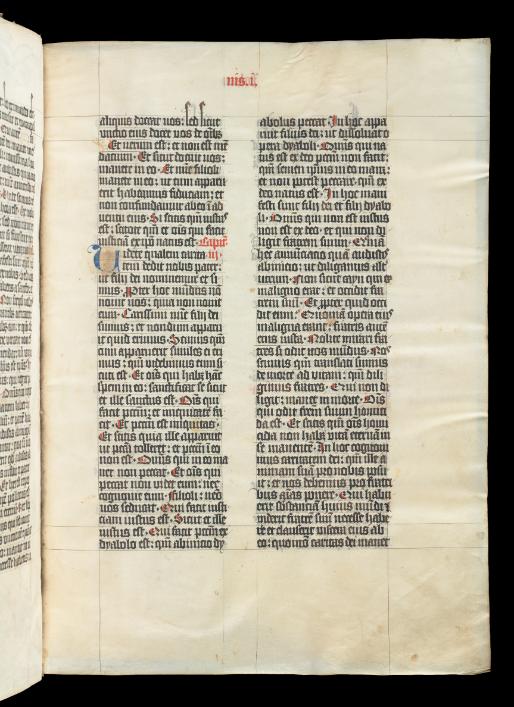 nis. i.
aliquis doceat uos: sed sicut
unctio eius docet uos de oĩbꝫ
Et uerum est: et non est mẽ
dacium. Et sicut docuit uos:
manete in eo. Et nũc filioli
manete in eo: ut cum apparu
erit habeamus fiduciam: et
non confundamur ab eo ĩ ad
uentu eius. Si scitis qm̃ iustus
est: scitote qm̃ et oĩs qui facit
iusticiã ex ip̃o natus est. Capit
Uidete qualem carita iii.
tem dedit nobis pater:
ut filij dei nominemur et si
mus. Propter hoc mũdus nõ
nouit nos: quia non nouit
eum. Carissimi nũc filij dei
sumus: et nondum apparu
it quid erimus. Scimus qm̃
cum apparuerit similes ei eri
mus: qm̃ uidebimus eum si
cuti est. Et oĩs qui habꝫ hãc
spem in eo: sanctificat se sicut
et ille sanctus est. Oĩs qui
facit pctm̃: et iniquitatẽ fa
cit. Et pctm̃ est iniquitas:
Et scitis quia ille apparuit
ut pctã tolleret: et pctm̃ in eo
non est. Omĩs qui in eo ma
net non peccat. Et oĩs qui
peccat non uidet eum: nec
cognouit eum. Filioli: nemo
uos seducat. Qui facit iusti
ciam iustus est. Sicut et ille
iustus est. Qui facit pctm̃ ex
dyabolo est: qm̃ ab inicio dy
abolus peccat. In hoc appa
ruit filius dei: ut dissoluat o
pera dyaboli. Omĩs qui na
tus est ex deo pctm̃ non facit:
qm̃ semen ipĩus in eo manet:
et non potest peccare. qm̃ ex
deo natus est. In hoc mani
festi sunt filij dei et filij dyabo
li. Omĩs qui non est iustus
non est ex deo: et qui non di
ligit fratrem suum. Qm̃
hec annũciatio quã audistis
ab inicio: ut diligamus alte
utrum. Non sicut cayn qui ex
maligno erat: et occidit fra
trem suũ. Et propter quid occi
dit eum? Qm̃ opera eius
maligna erant: fratris autẽ
eius iusta. Nolite mirari fra
tres si odit uos mũdus. Nos
scimus qm̃ translati sumus
de morte ad uitam: qm̃ dili
gimus fratres. Qui non di
ligit: manet in morte. Oĩs
qui odit fratrem suum homici
da est. Et scitis qm̃ oĩs homi
cida non habꝫ uitã eternã in
se manentẽ. In hoc cognoui
mus caritatem dei: qm̃ ille a
nimam suã pro nobis posu
it: et nos debemus pro fratri
bus aĩas ponere. Qui habu
erit substanciã huius mũdi et
uiderit fratrẽ suũ necesse habe
re et clauserit uiscera eius ab
eo: quomõ caritas dei manet